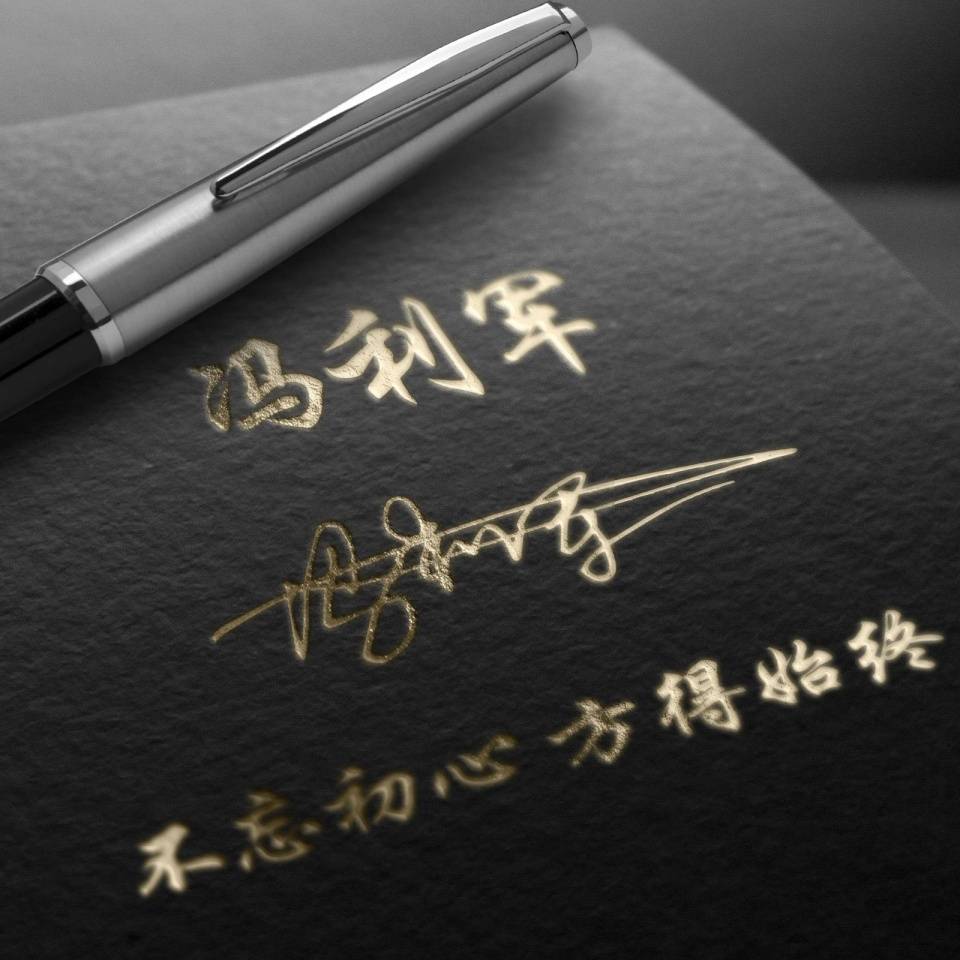 冯利军
不忘初心 方得始终